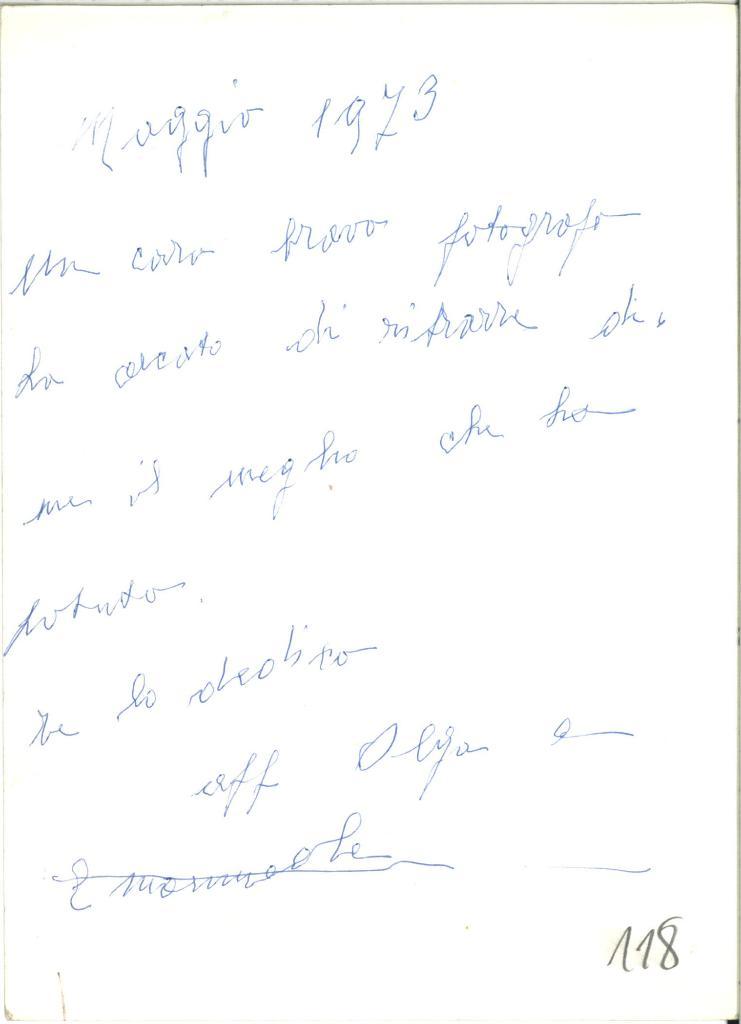 Maggio 1973
Un caro bravo fotografo
ha cercato di ritrarre di
me il meglio che ha
potuto.
te lo dedico
aff Olga a
118